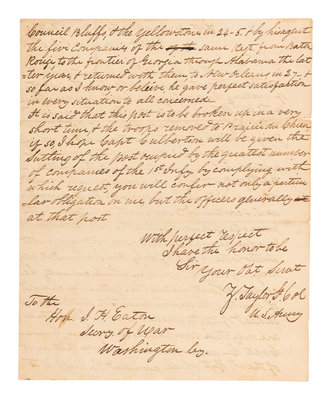 Council Bluffs, & the Yellowstone in 24-5. & by
the five Companies of the same Regt. from Baton
Rouge to the frontier of Georgia through Alabama the lat-
ter year, & returned with them to New Orleans in 27 - &
so far as I know or believe, he gave perfect satisfaction
in every situation to all concerned.
It is said that this post is to be broken up in a very
short time & the troops removed to Prairie du Chien
if so, I hope Capt Culbertson will be given the
Sutling of the post occupied by the greatest number
of Companies of the 1st Infy. by complying with
which request, you will confer not only a particu-
lar obligation on me but the officers generally
at that post
With perfect respect
I have the honor to be
Sir Your Obt Servt
Z. Taylor Lt. Col
U.S. Army
To the
Hon. J. H. Eaton
Secry of War
Washington Cy.